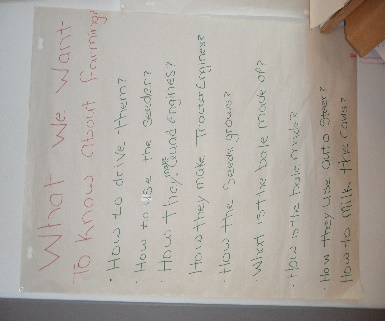 What We Want
To Know About farming?
· How to drive them?
· How to Use the Seeder?
· How They make Quad Engines?
How they make Tracter Engines?
· How the Seeds grows?
· What is the bale made of?
· How is the bale made?
· How they Use auto Steer?
How to Milk the Cows?